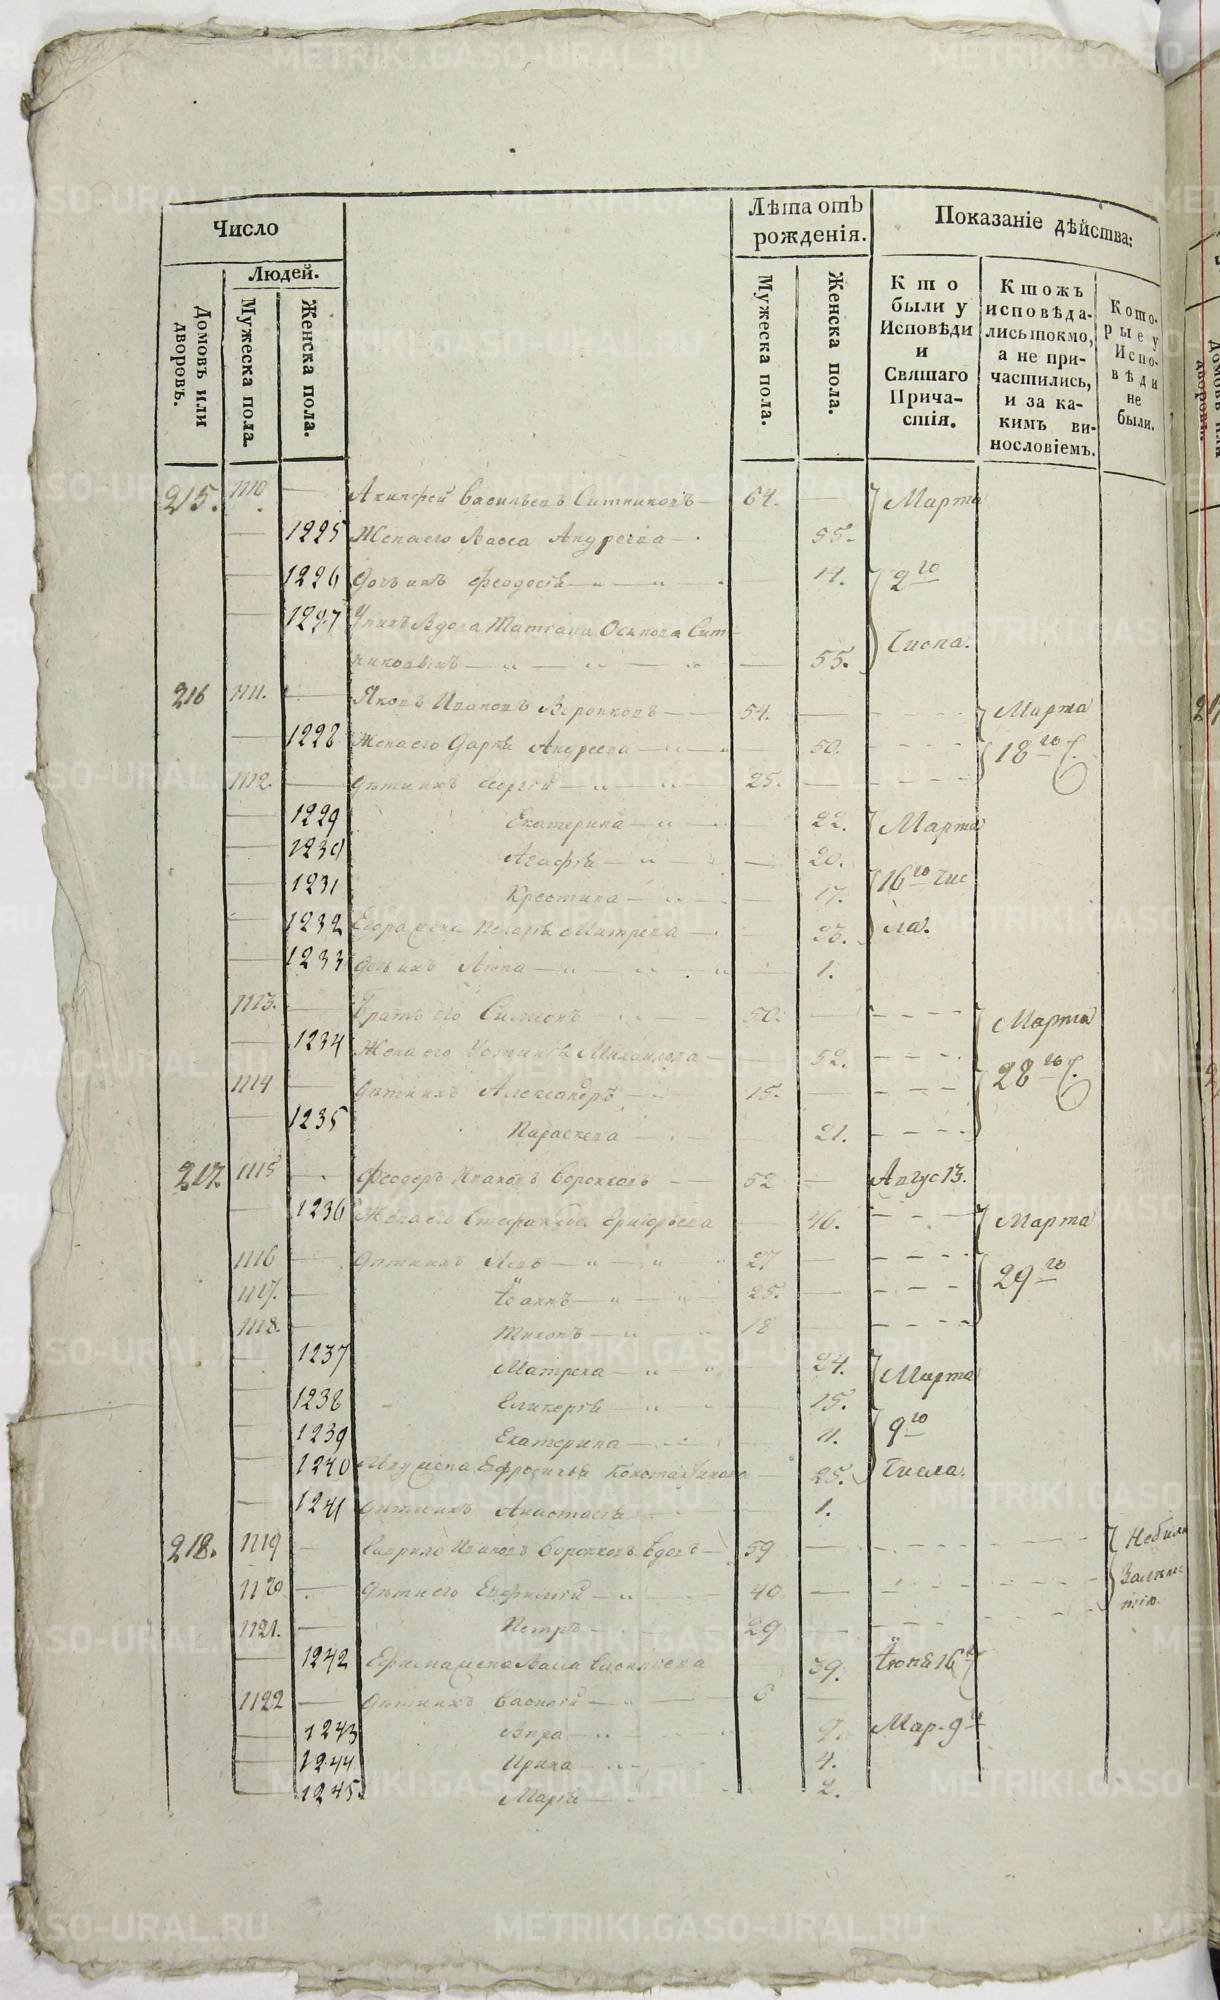 METRIKI.GASO-URAL.RU
Число
Лѣта отъ рожденія.
Показаніе дѣйства:
Людей.
Домовъ или дворовъ.
Мужеска пола.
Женска пола.
Мужеска пола.
Женска пола.
Кто были у Исповѣди и Святаго Причастія.
Ктожъ исповѣдались токмо, а не причастились, и за какимъ винословіемъ.
Которые у Исповѣди не были.
215. 1110 — Акинфей Васильевъ Ситниковъ — 64. — Марта
— 1225 Жена его Васса Андреева — 55.
— 1226 Дочь ихъ Феодосія — 14. 9го
— 1227 У нихъ Вдова Татіана Осипова Сит
никовыхъ — 55. Числа.
216 1111. — Яковъ Ивановъ Воронковъ — 54. — Марта
— 1228 Жена его Дарья Андреева — 50. 18го Ч.
1112. — Дѣти ихъ Сергій — 25. —
— 1229 Екатерина — 22. Марта
— 1230 Агафія — 20.
— 1231 Крестина — 17. 16го Чис
— 1232 жена Митрева — 23. ла.
— 1233 Дочь ихъ Анна — 1.
1113. — Братъ его Симеонъ — 50. — Марта
— 1234 Жена его Устинія Михаилова — 52. 28го Ч.
1114 — Дѣти ихъ Александръ — 15. —
— 1235 Параскева — 21.
217. 1115 — Феодоръ Ивановъ Воронковъ — 52 — Авгус 13.
— 1236 Жена его Стефанида Григорьева — 46. Марта
1116 — Дѣти ихъ Левъ — 27 — 29го
1117. — Іоаннъ — 25. —
1118. — Тихонъ — 18 —
— 1237 Матрена — 24. Марта
— 1238 Гликерія — 15. 9го
— 1239 Екатерина — 11.
— 1240 жена Ефросинья Константинова — 25. Числа.
— 1241 Дѣти ихъ Анастасія — 1.
218. 1119 — Гаврило Ивановъ Воронковъ Вдовъ — 59 — Небыли
1120 — Дѣти его Евфимій — 40 —
1121. — Петръ — 29 —
— 1242 жена Васса — 39. Іюня 16
1122 — Дѣти ихъ Василій — 6 —
— 1243 Вѣра — 9. Мар. 9го
— 1244 Ирина — 4.
— 1245. Марья — 2.